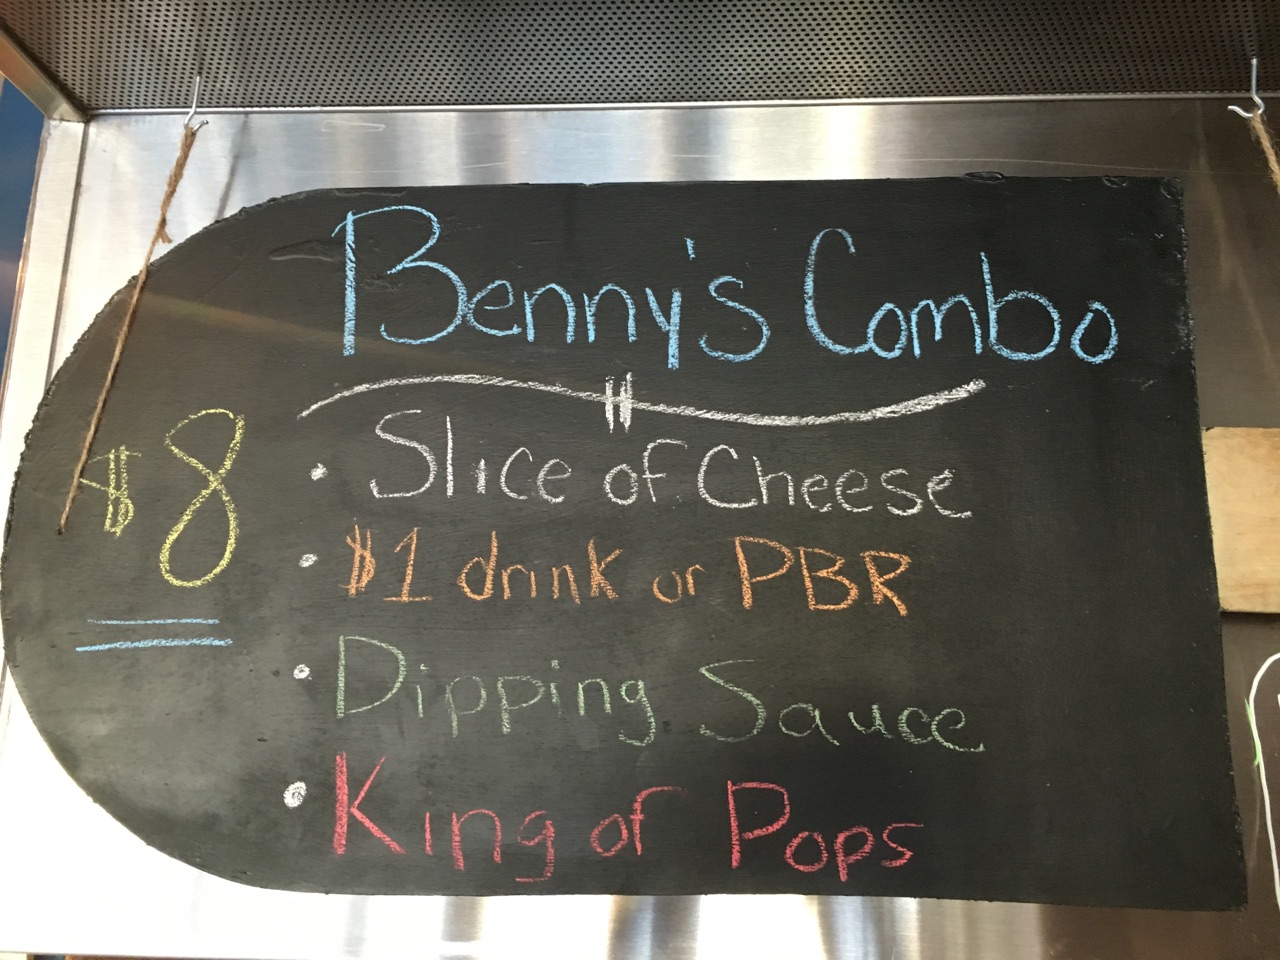 Benny's Combo
$8
• Slice of Cheese
• $1 drink or PBR
• Dipping Sauce
• King of Pops